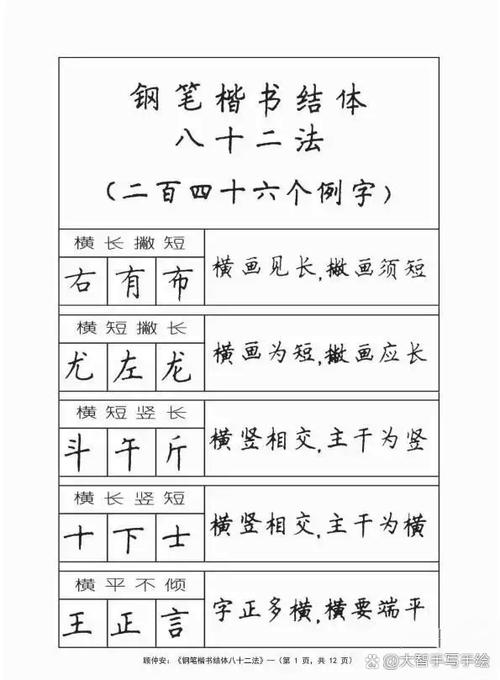 钢笔楷书结体
八十二法
(二百四十六个例字)
横长撇短
右有布
横画见长,撇画须短
横短撇长
尤左龙
横画为短,撇画应长
横短竖长
斗午斤
横竖相交,主干为竖
横长竖短
十下士
横竖相交,主干为横
横平不倾
王正言
字正多横,横要端平
顾仲安:《钢笔楷书结体八十二法》—(第 1 页,共 12 页)
@大智手写手绘